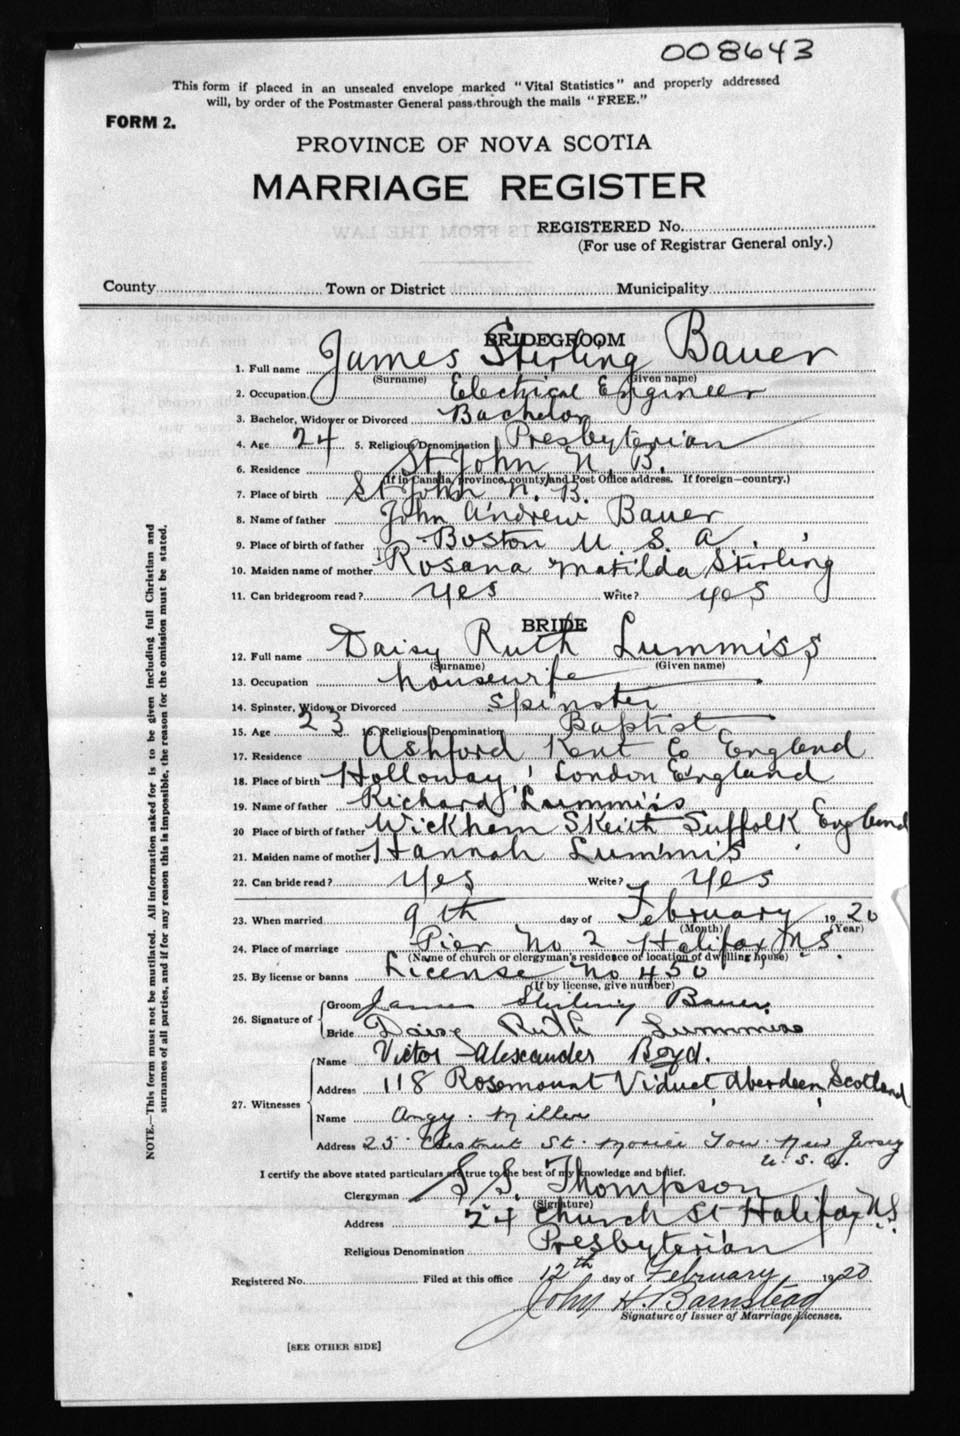 008643
This form if placed in an unsealed envelope marked "Vital Statistics" and properly addressed
will, by order of the Postmaster General pass through the mails "FREE."
FORM 2.
PROVINCE OF NOVA SCOTIA
MARRIAGE REGISTER
REGISTERED No.
(For use of Registrar General only.)
County Town or District Municipality
BRIDEGROOM
1. Full name James Stirling Bauer
(Surname) (Given name)
2. Occupation Electrical Engineer
3. Bachelor, Widower or Divorced Bachelor
4. Age 24 5. Religious Denomination Presbyterian
6. Residence St John N. B.
(If in Canada, province, county and Post Office address. If foreign—country.)
7. Place of birth St John N. B.
8. Name of father John Andrew Bauer
9. Place of birth of father Boston U. S. A.
10. Maiden name of mother Rosana Matilda Stirling
11. Can bridegroom read? yes Write? yes
BRIDE
12. Full name Daisy Ruth Lummiss
(Surname) (Given name)
13. Occupation housewife
14. Spinster, Widow or Divorced Spinster
15. Age 23 16. Religious Denomination Baptist
17. Residence Ashford Kent Co England
18. Place of birth Holloway, London England
19. Name of father Richard Lummiss
20 Place of birth of father Wickham Skeith Suffolk England
21. Maiden name of mother Hannah Lummis
22. Can bride read? yes Write? yes
23. When married 9th day of February 1920
(Month) (Year)
24. Place of marriage Pier No 2 Halifax N.S.
(Name of church or clergyman's residence or location of dwelling house)
25. By license or banns License No 450
(If by license, give number)
26. Signature of Groom James Stirling Bauer
Bride Daisy Ruth Lummiss
27. Witnesses Name Victor Alescander Boyd.
Address 118 Rosemount Viduct, Aberdeen, Scotland
Name Miller
Address 25 Chestnut St. New Jersey
U. S. A.
I certify the above stated particulars are true to the best of my knowledge and belief.
Clergyman S. S. Thompson
(Signature)
Address 24 Church St Halifax N.S.
Religious Denomination Presbyterian
Registered No. Filed at this office 12th day of February 1920
John H. Barnstead
Signature of Issuer of Marriage Licenses.
[SEE OTHER SIDE]
NOTE.—This form must not be mutilated. All information asked for is to be given including full Christian and
surnames of all parties, and if for any reason this is impossible, the reason for the omission must be stated.